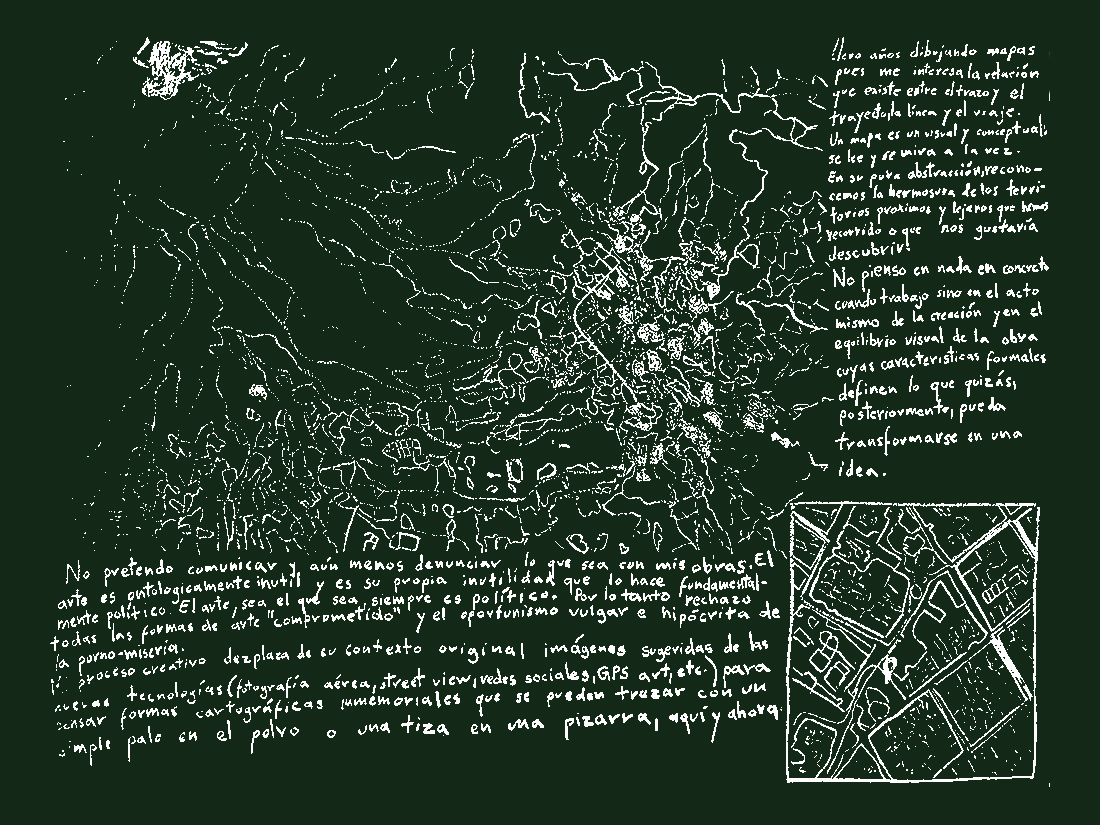 Llevo años dibujando mapas
pues me interesa la relación
que existe entre el trazo y el
trayecto, la línea y el viaje.
Un mapa es un visual y conceptual,
se lee y se mira a la vez.
En su pura abstracción, recono-
cemos la hermosura de los terri-
torios proximos y lejanos que hemos
recorrido o que nos gustaría
descubrir.
No pienso en nada en concreto
cuando trabajo sino en el acto
mismo de la creación y en el
equilibrio visual de la obra
cuyas caracteristicas formales
definen lo que quizás,
posteriormente, pueda
transformarse en una
idea.
No pretendo comunicar y, aún menos denunciar, lo que sea con mis obras. El
arte es ontologicamente inutil y es su propia inutilidad que lo hace fundamental-
mente político. El arte, sea el que sea, siempre es político. Por lo tanto rechazo
todas las formas de arte "comprometido" y el oportunismo vulgar e hipócrita de
la porno-miseria.
proceso creativo desplaza de su contexto original imágenes sugeridas de las
nuevas tecnologías (fotografía aérea, street view, redes sociales, GPS art, etc.) para
pensar formas cartográficas inmemoriales que se pueden trazar con un
simple palo en el polvo o una tiza en una pizarra, aquí y ahora.